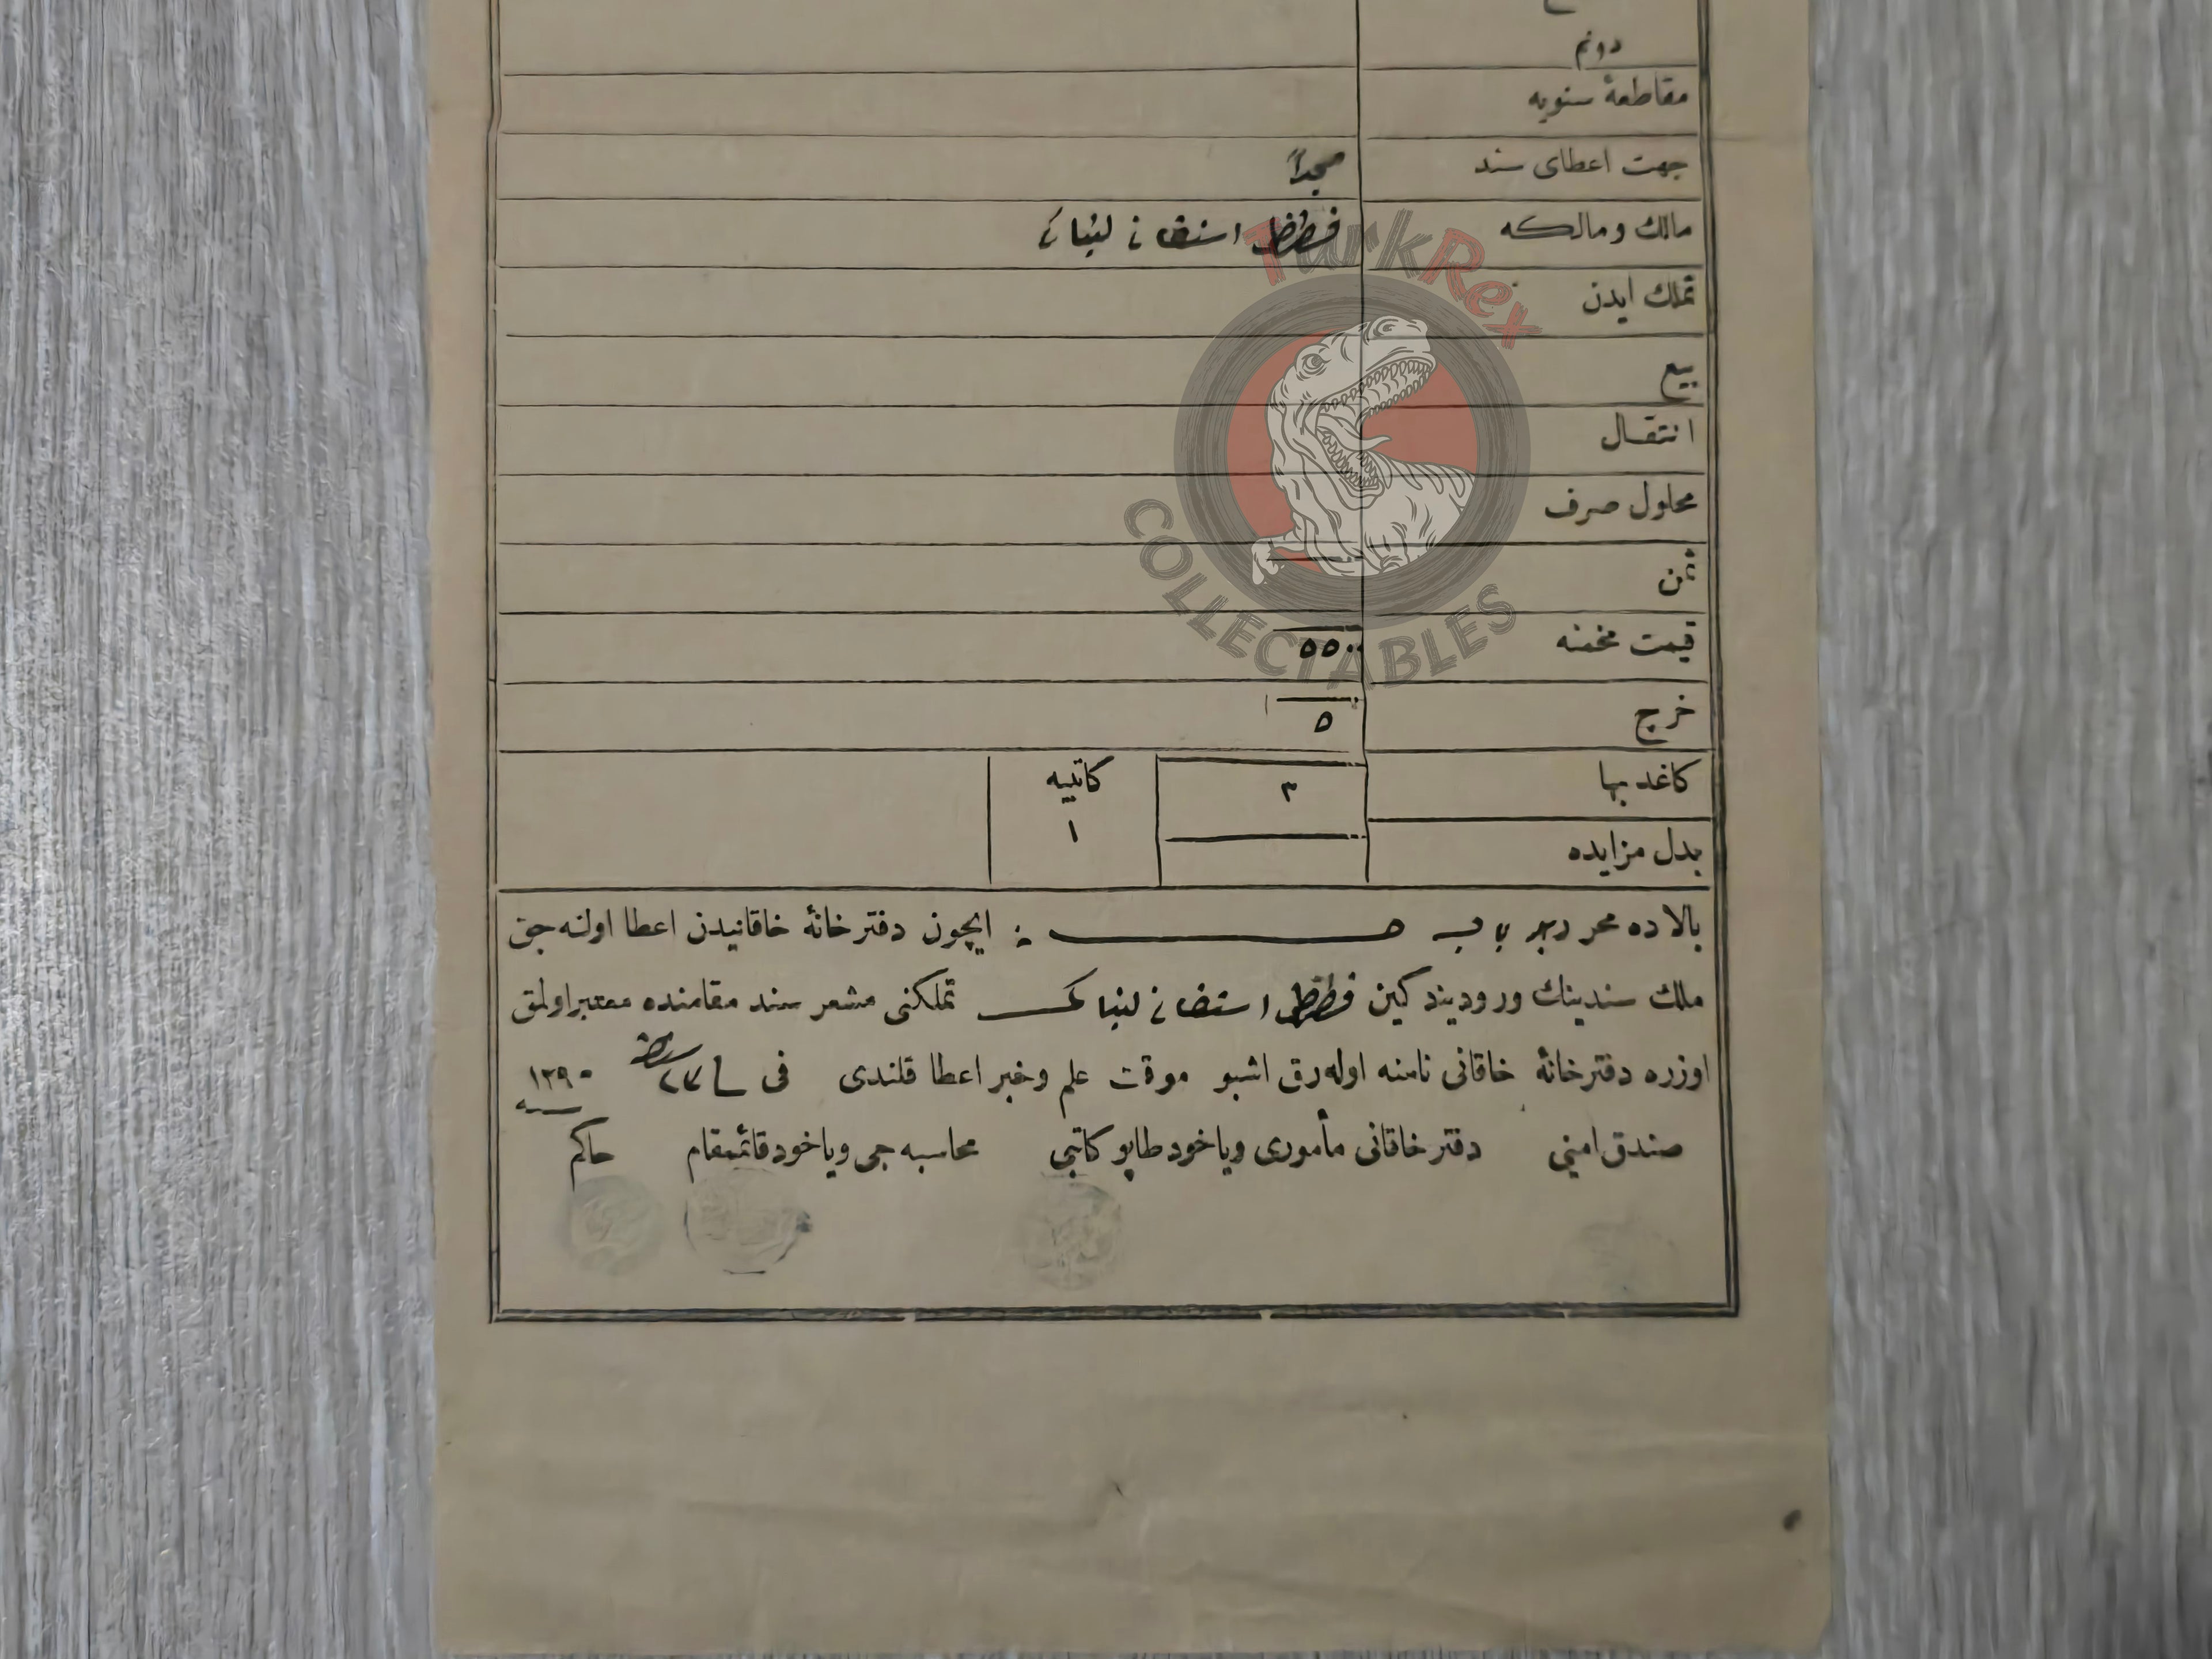 دونم
مقاطعهٔ سنویه
جهت اعطای سند مجدداً
مالك و مالکه
تملك ایدن
بیع
انتقال
محلول صرف
ثمن
قیمت مخمنه ٥٥٠٠
خرج ٥
كاغد بها ٣ كاتبیه ١
بدل مزایده
بالاده محرر ایچون دفترخانهٔ خاقانیدن اعطا اولنه جق
ملك سندینك ورودیند كین تملكنی مشعر سند مقامنده معتبر اولمق
اوزره دفترخانهٔ خاقانی نامنه اوله رق اشبو موقت علم وخبر اعطا قلندی فی ٢٧ سنه ١٢٩٠
صندق امینی دفتر خاقانی مأموری ویاخود طاپو كاتبی محاسبه جی ویاخود قائمقام حاكم
TurkRex
COLLECTABLES